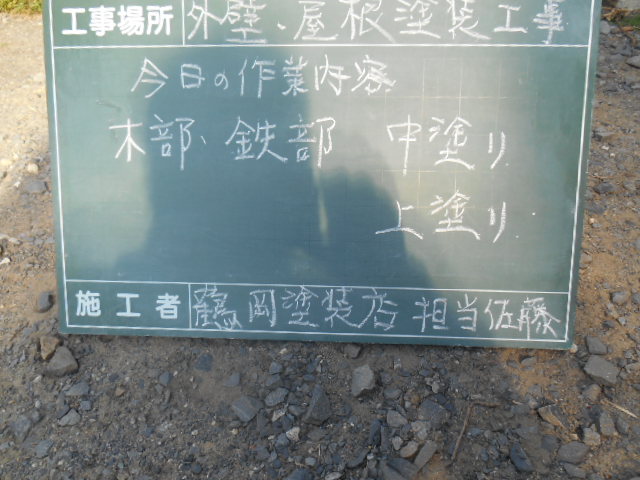 工事場所 外壁、屋根塗装工事
今日の作業内容
木部、鉄部 中塗り
上塗り
施工者 鶴岡塗装店 担当佐藤